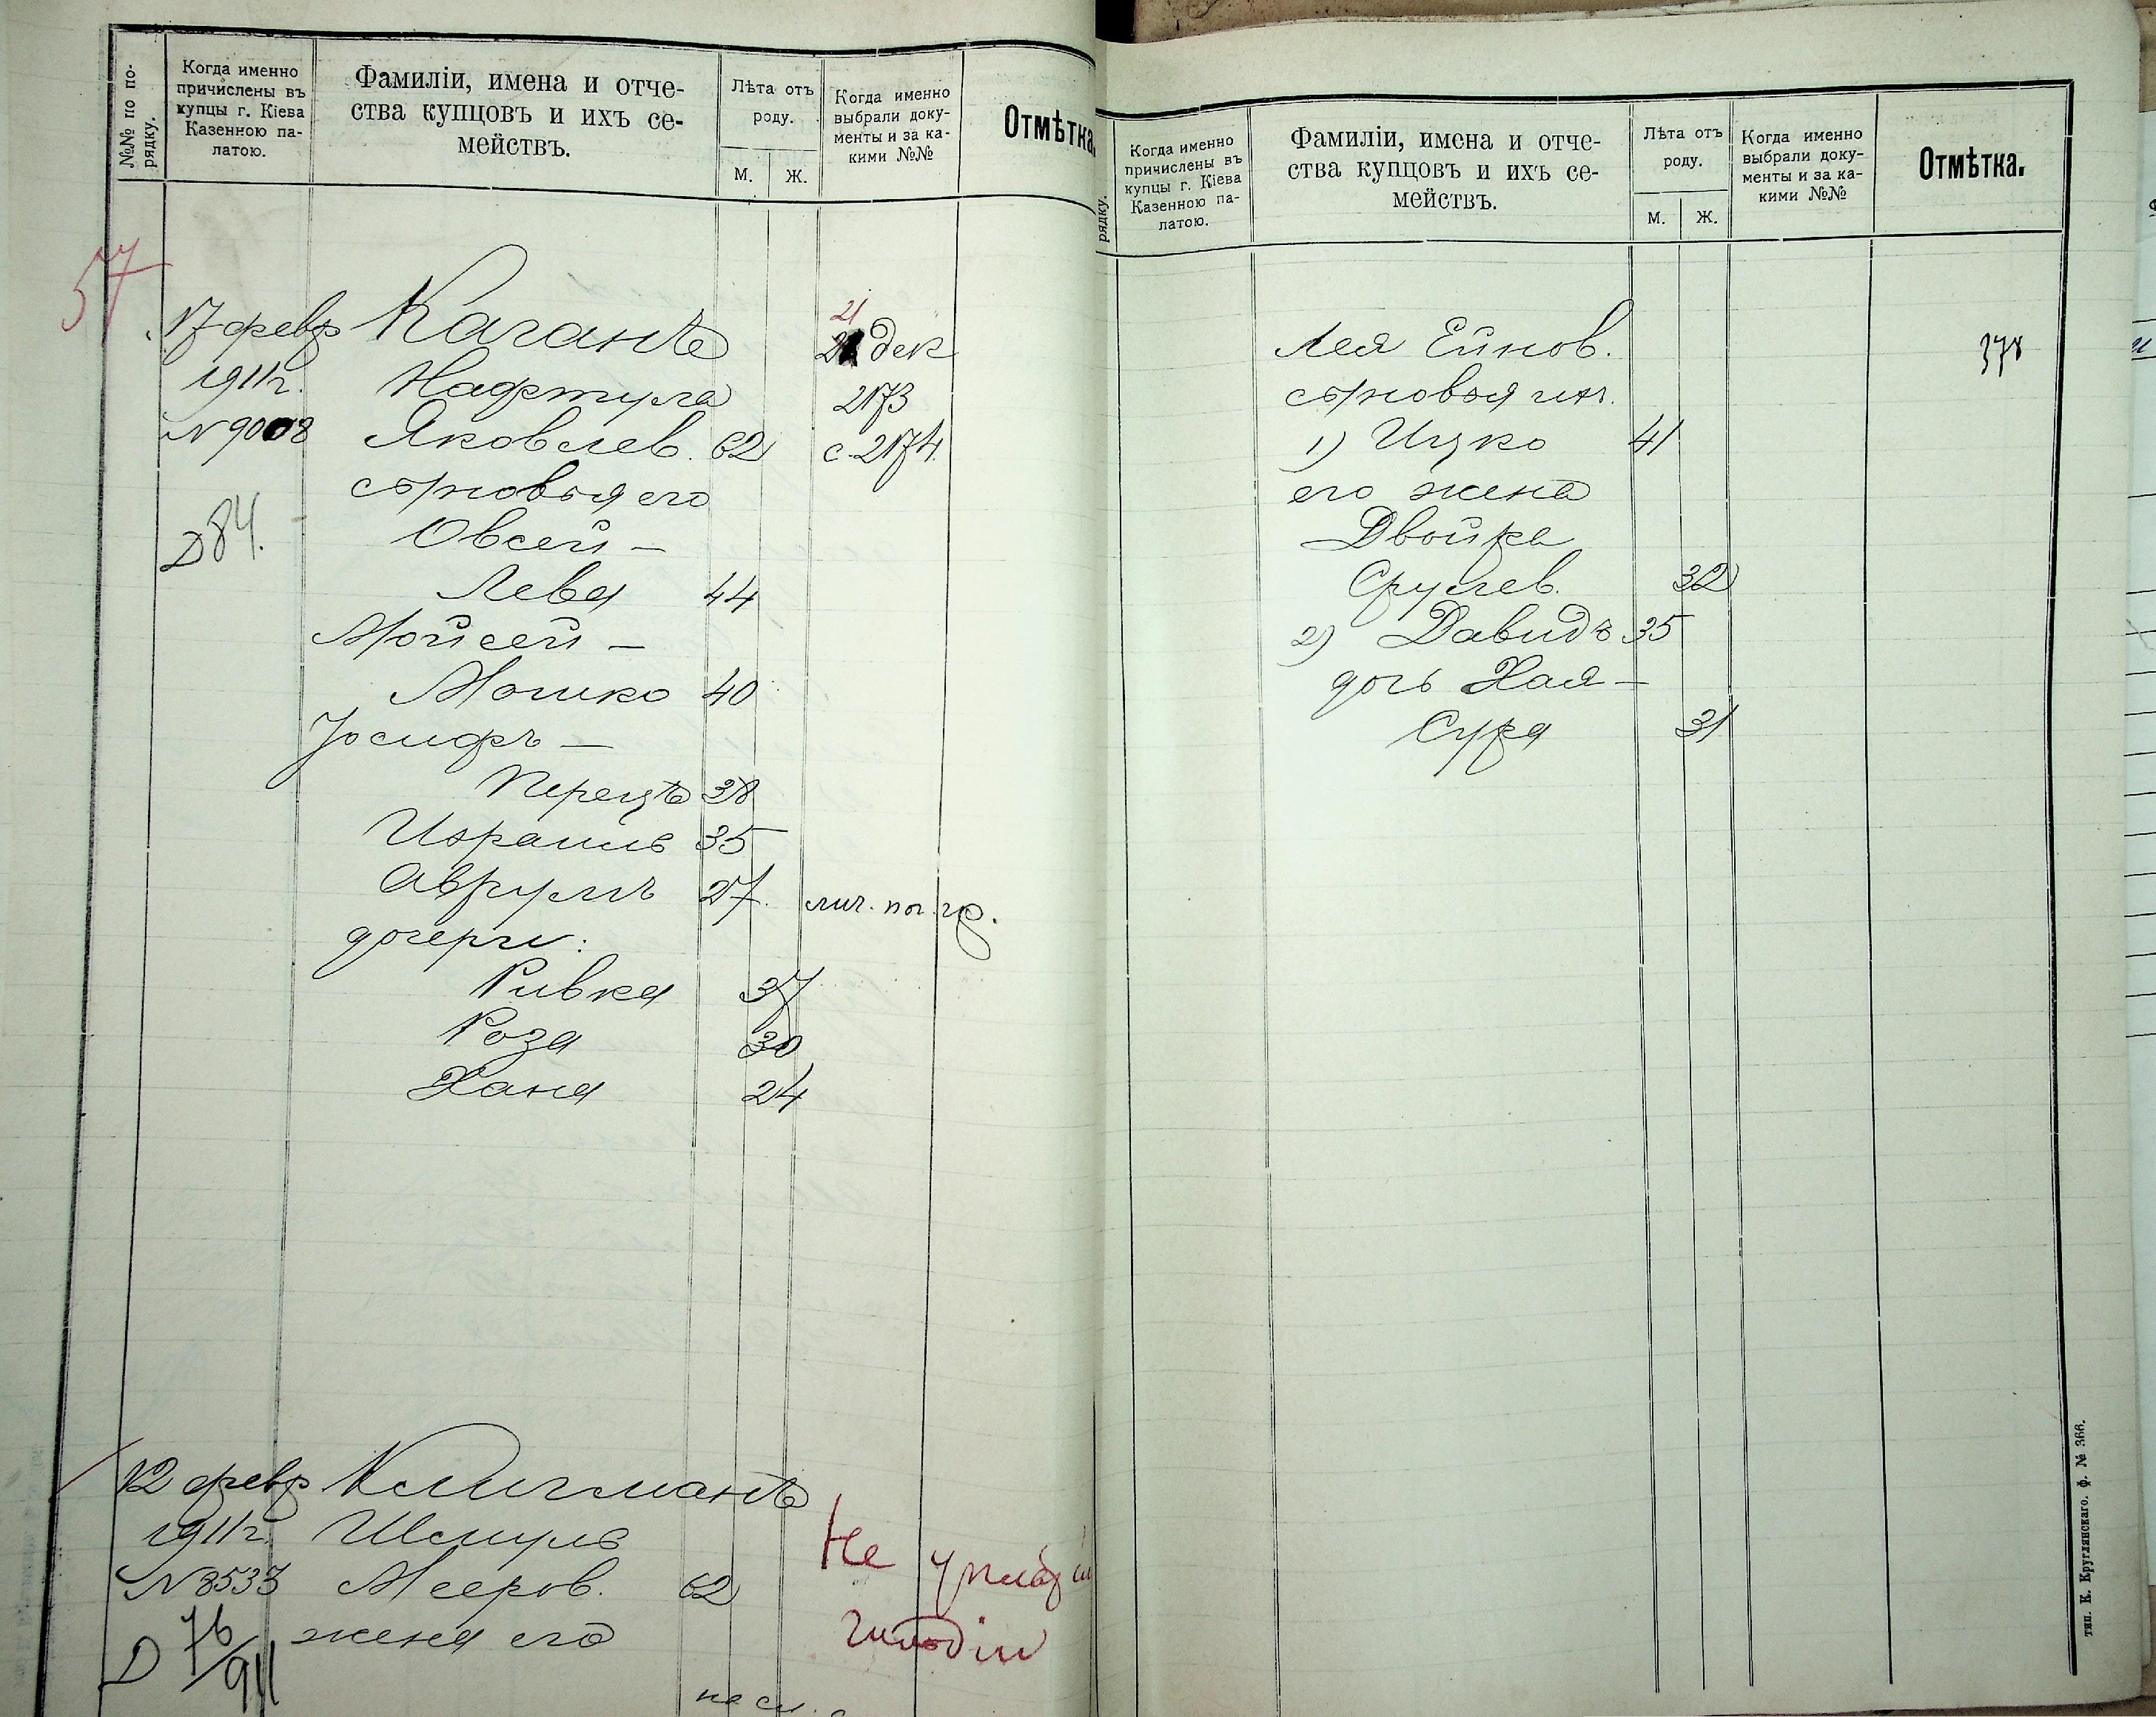 №№ по по-
рядку.
Когда именно
причислены въ
купцы г. Кіева
Казенною па-
латою.
Фамиліи, имена и отче-
ства купцовъ и ихъ се-
мействъ.
Лѣта отъ
роду.
М. Ж.
Когда именно
выбрали доку-
менты и за ка-
кими №№
Отмѣтка.
57
17 февр Каганъ 21 дек
1911 г. Нафтула 2173
№ 9008 Яковлев. 62 с 2174
сыновья его
Д 84. Овсей –
Лева 44
Мойсей –
Мошко 40
Іосифъ –
Перецъ 38
Израиль 35
Аврумъ 27 лич. поч. гр.
дочери:
Ривка 37
Роза 30
Хана 24
12 февр Клигманъ
1911 г. Шмуль
№ 8533 Мееров. 62
Д 76/911 жена его
Не
гильдіи
рядку.
Когда именно
причислены въ
купцы г. Кіева
Казенною па-
латою.
Фамиліи, имена и отче-
ства купцовъ и ихъ се-
мействъ.
Лѣта отъ
роду.
М. Ж.
Когда именно
выбрали доку-
менты и за ка-
кими №№
Отмѣтка.
Лея Ейнов. 378
сыновья ихъ
1) Ицко 41
его жена
Двойра
Срулев. 32
2) Давидъ 35
дочь Хая –
Сура 31
тип. К. Круглянскаго. ф. № 366.